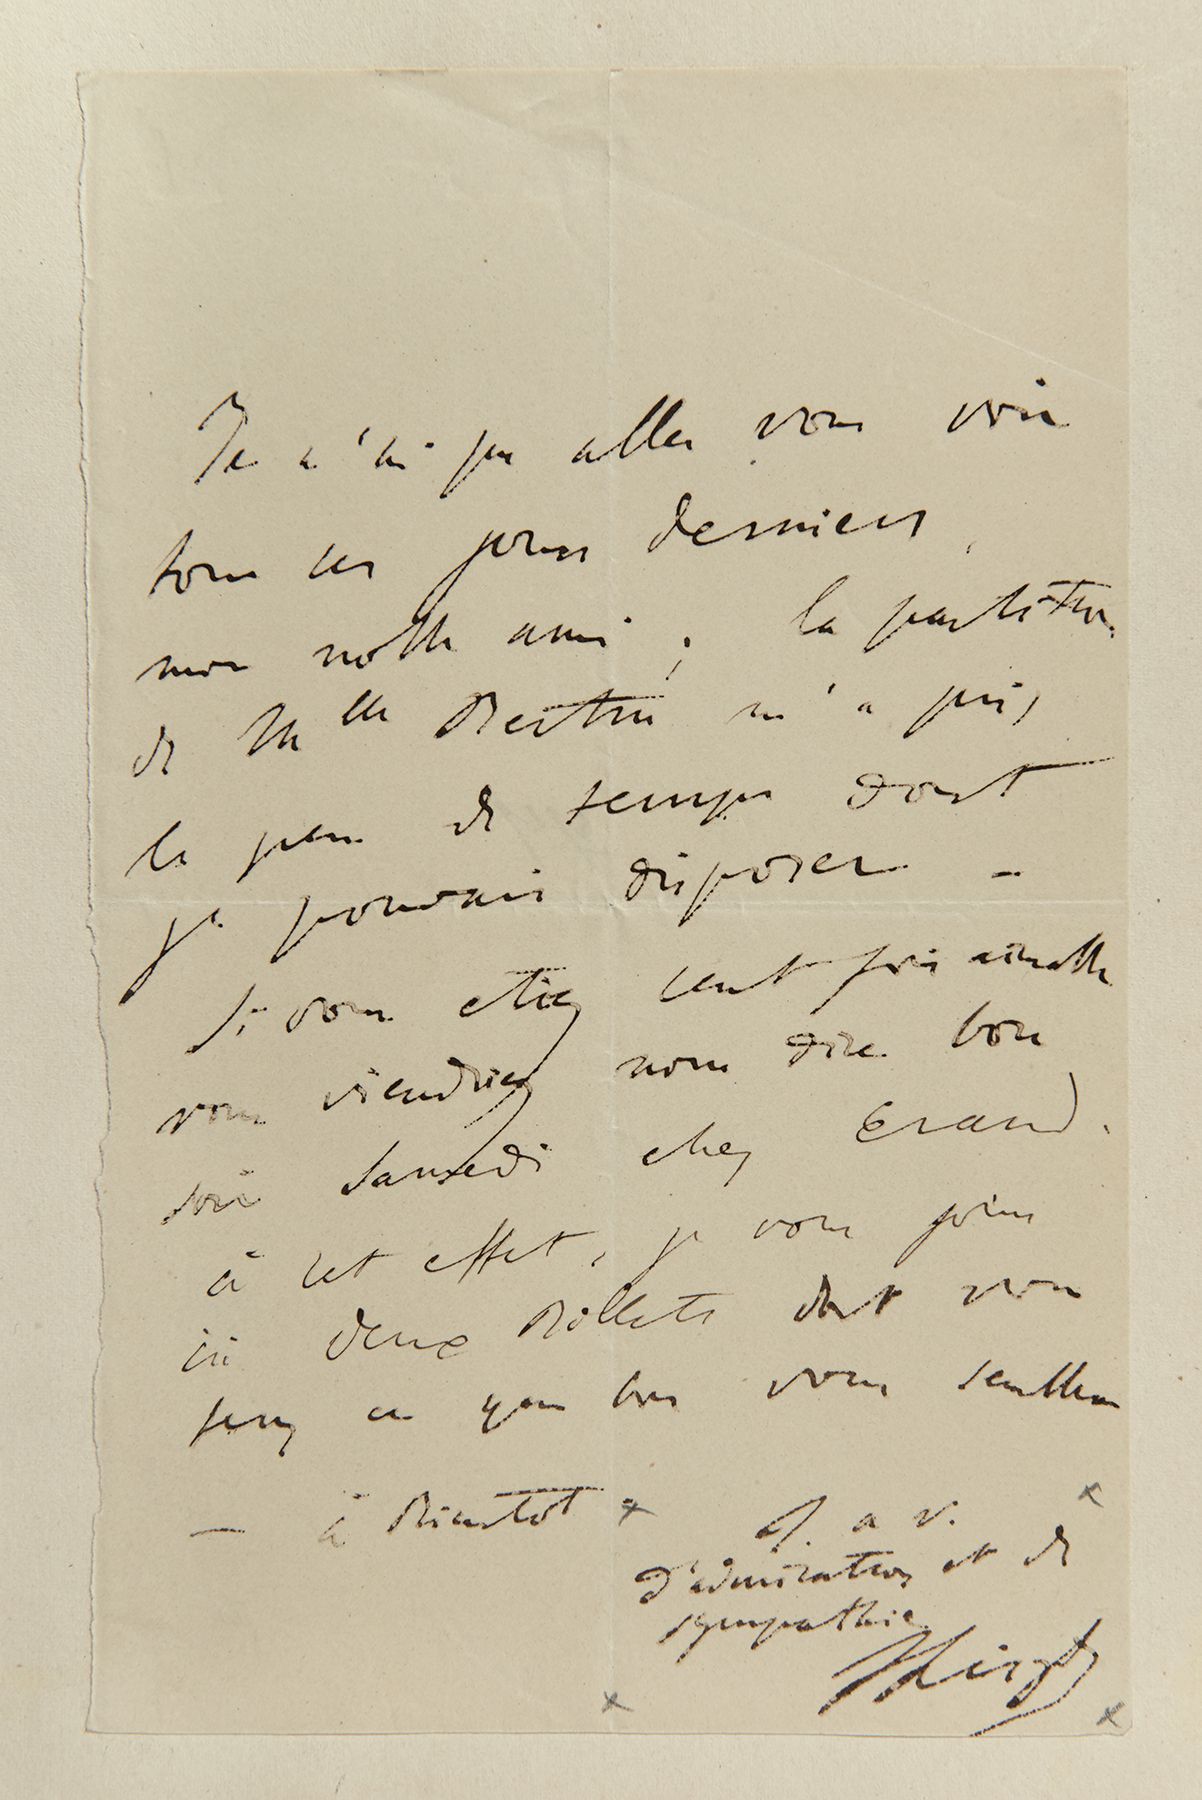 Je n'ai pu aller vous voir
tous ces jours derniers,
mon noble ami ; la partition
de Mlle Bertin m'a pris
le peu de temps dont
je pouvais disposer –
Si vous etiez cent fois aimable
vous viendriez nous dire bon
soir Samedi chez Erard.
à cet effet, je vous joins
ici deux Billets dont vous
ferez ce que bon vous semblera
– à Bientot
T. a v.
d'admiration et de
sympathie
FLiszt